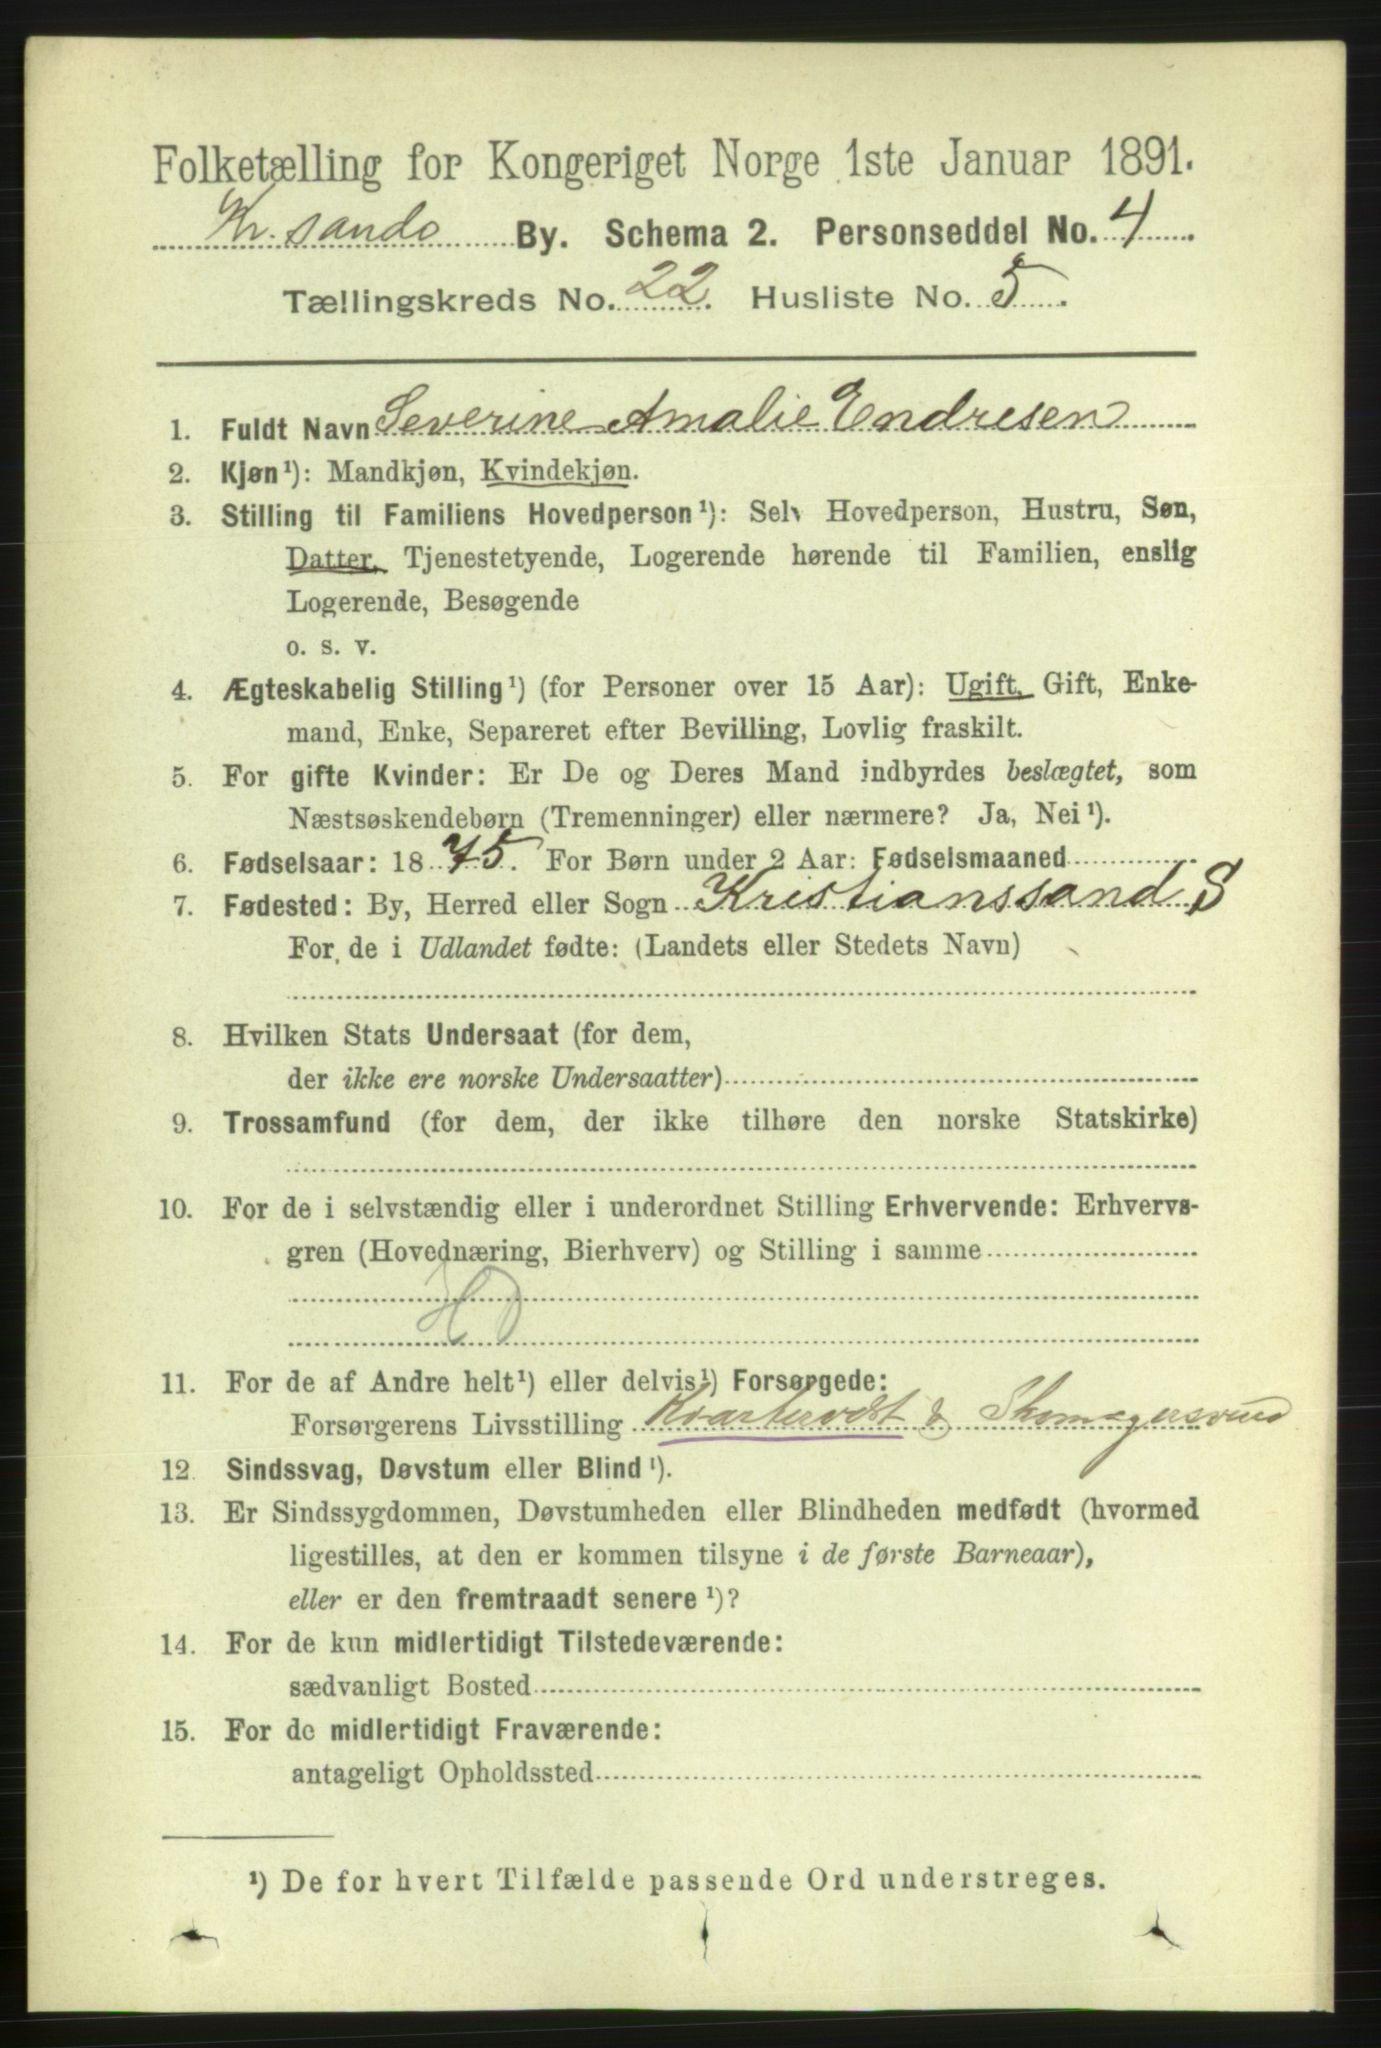 Folketælling for Kongeriget Norge 1ste Januar 1891.
Kr.sands By. Schema 2. Personseddel No. 4
Tællingskreds No. 22. Husliste No. 5.
1. Fuldt Navn Severine Amalie Endresen
2. Kjøn¹): Mandkjøn, Kvindekjøn.
3. Stilling til Familiens Hovedperson¹): Selv Hovedperson, Hustru, Søn,
Datter, Tjenestetyende, Logerende hørende til Familien, enslig
Logerende, Besøgende
o. s. v.
4. Ægteskabelig Stilling¹) (for Personer over 15 Aar): Ugift, Gift, Enke-
mand, Enke, Separeret efter Bevilling, Lovlig fraskilt.
5. For gifte Kvinder: Er De og Deres Mand indbyrdes beslægtet, som
Næstsøskendebørn (Tremenninger) eller nærmere? Ja, Nei¹).
6. Fødselsaar: 1875. For Børn under 2 Aar: Fødselsmaaned
7. Fødested: By, Herred eller Sogn Kristianssand S
For de i Udlandet fødte: (Landets eller Stedets Navn)
8. Hvilken Stats Undersaat (for dem,
der ikke ere norske Undersaatter)
9. Trossamfund (for dem, der ikke tilhøre den norske Statskirke)
10. For de i selvstændig eller i underordnet Stilling Erhvervende: Erhvervs-
gren (Hovednæring, Bierhverv) og Stilling i samme
HD
11. For de af Andre helt¹) eller delvis¹) Forsørgede:
Forsørgerens Livsstilling & Skomagersvend
12. Sindssvag, Døvstum eller Blind¹).
13. Er Sindssygdommen, Døvstumheden eller Blindheden medfødt (hvormed
ligestilles, at den er kommen tilsyne i de første Barneaar),
eller er den fremtraadt senere¹)?
14. For de kun midlertidigt Tilstedeværende:
sædvanligt Bosted
15. For de midlertidigt Fraværende:
antageligt Opholdssted
¹) De for hvert Tilfælde passende Ord understreges.